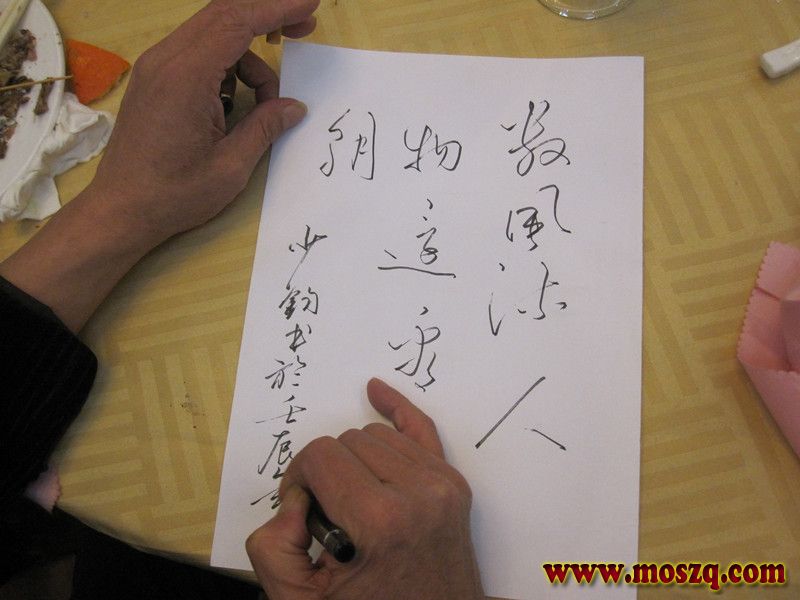 数風流人
物還看
朝
少鈞书於壬辰
www.moszq.com